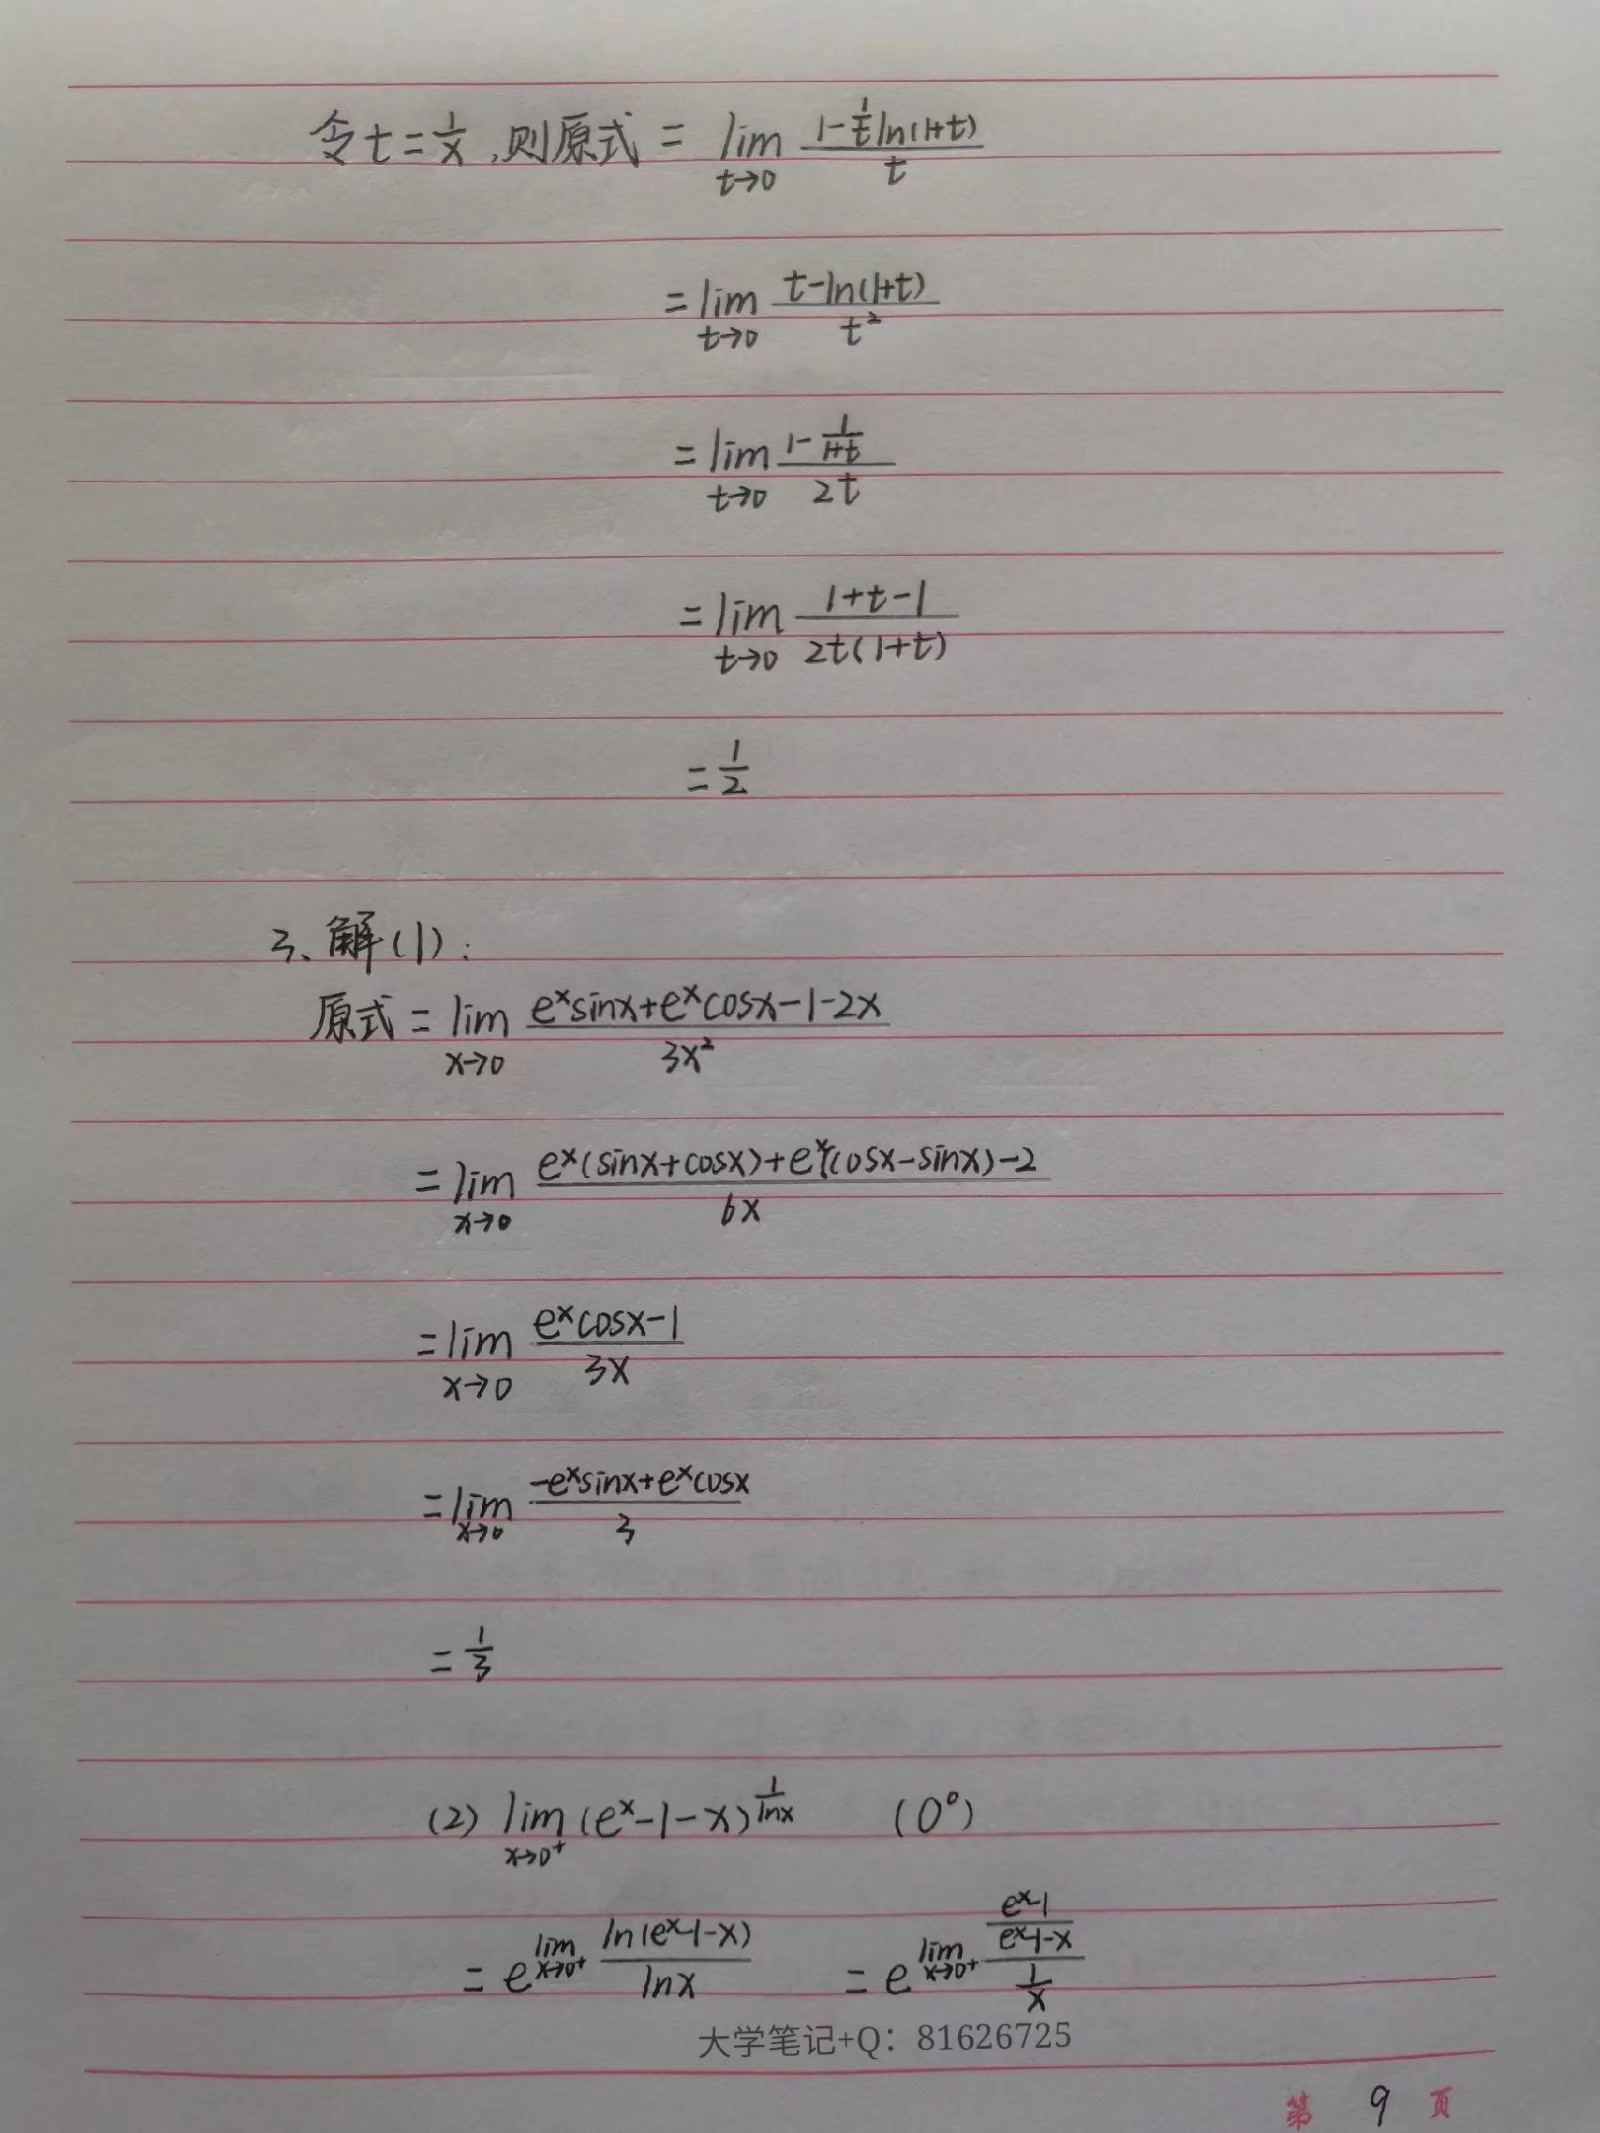 令t=1/x,则原式 = lim t→0 (1-1/t ln(1+t))/t
= lim t→0 (t-ln(1+t))/t²
= lim t→0 (1-1/(1+t))/2t
= lim t→0 (1+t-1)/(2t(1+t))
= 1/2
3、解(1):
原式 = lim x→0 (eˣsinx+eˣcosx-1-2x)/3x²
= lim x→0 (eˣ(sinx+cosx)+eˣ(cosx-sinx)-2)/6x
= lim x→0 (eˣcosx-1)/3x
= lim x→0 (-eˣsinx+eˣcosx)/3
= 1/3
(2) lim x→0⁺ (eˣ-1-x)^(1/lnx) (0⁰)
= e^(lim x→0⁺ ln(eˣ-1-x)/lnx) = e^(lim x→0⁺ ((eˣ-1)/(eˣ-1-x))/(1/x))
大学笔记+Q：81626725
第 9 页